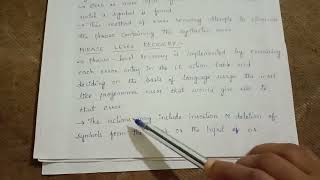 until a symbol is found
→ This method of error recovery attempts to eliminate
the phrase containing the syntactic error
PHRASE LEVEL RECOVERY:-
→ Phrase level recovery is implemented by examining
each error entry in the LR action table and
deciding on the basis of language usage the most
like programme error that would give rise to
that error
→ The actions may include insertion or deletion of
symbols from the or the input or